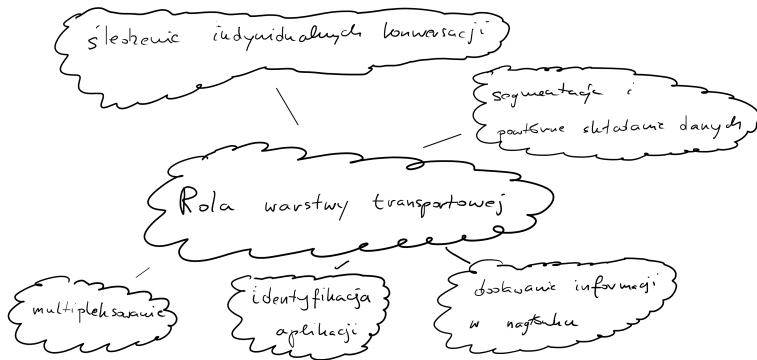 śledzenie indywidualnych konwersacji
segmentacja i
powtórne składanie danych
Rola warstwy transportowej
multipleksowanie
identyfikacja
aplikacji
dodawanie informacji
w nagłówku